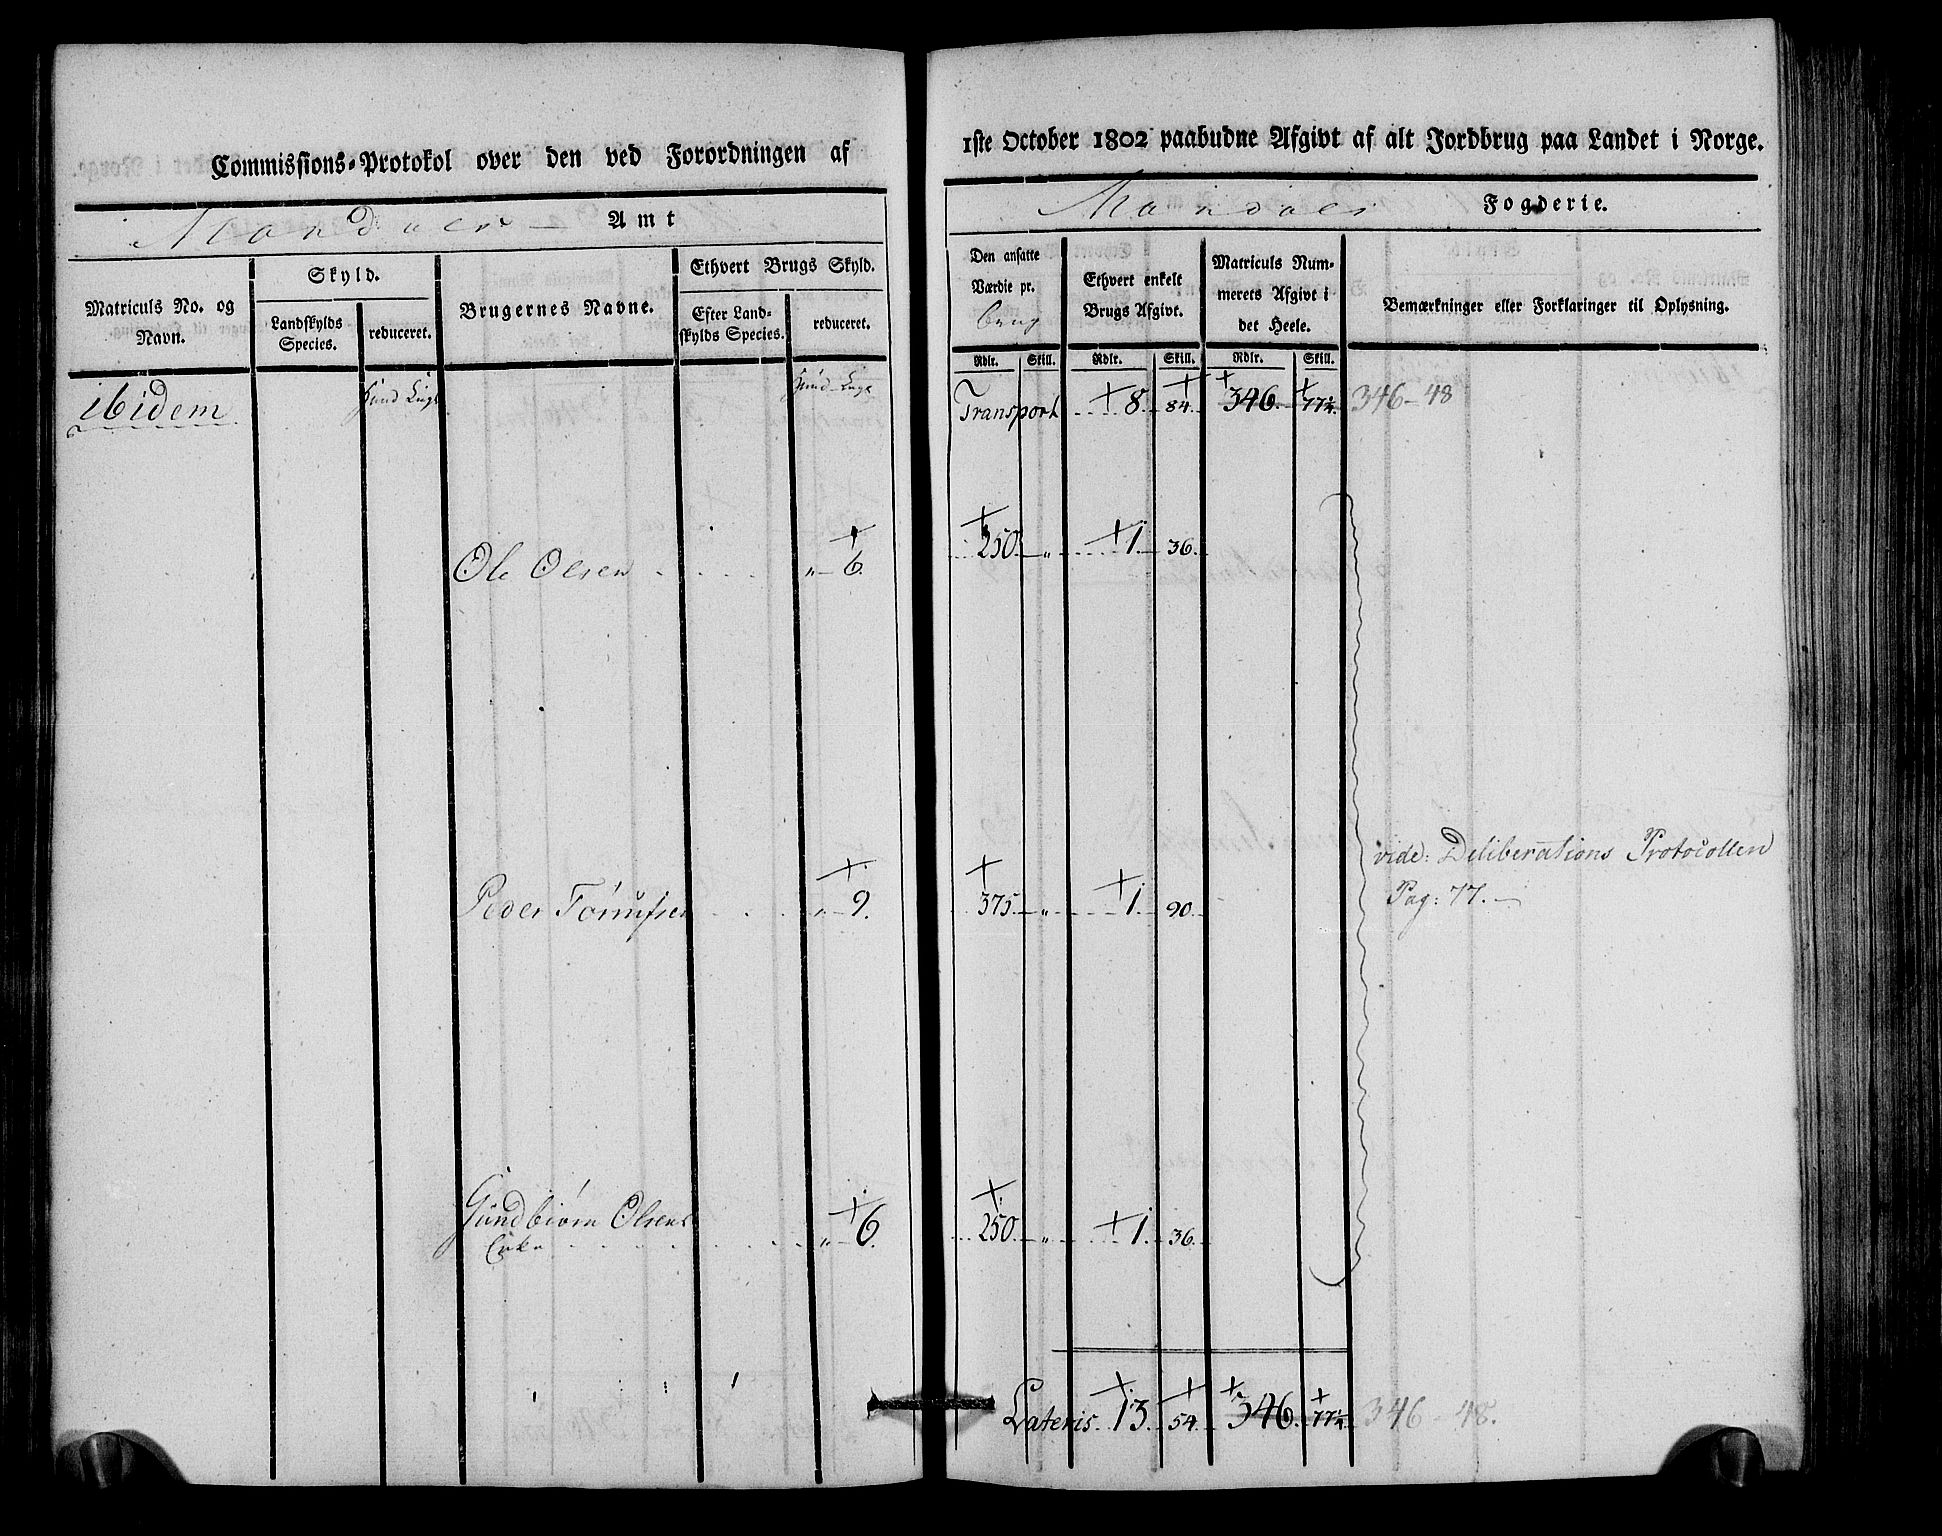 Commissions-Protokol over den ved Forordningen af
1ste October 1802 paabudne Afgivt af alt Jordbrug paa Landet i Norge.
Mandals Amt
Mandals Fogderie.
Matriculs No. og Navn.
Skyld.
Landskylds Species.
reduceret.
Brugernes Navne.
Ethvert Brugs Skyld.
Efter Landskylds Species.
reduceret.
Den ansatte Værdie pr. brug
Ethvert enkelt Brugs Afgivt.
Matriculs Nummerets Afgivt i det Heele.
Bemærkninger eller Forklaringer til Oplysning.
Rdlr. Skill. Rdlr. Skill. Rdlr. Skill.
ibidem Hund Eng Hund Eng Transport + 8. + 84. + 346. + 77¼. 346-48
Ole Olsen + „ 6. + 250 „ + 1. 36.
Peder + „ 9. + 375 „ + 1. 90.
vide: Deliberations Protocollen
Pag: 77.
Gundbiørn Olsens + „ 6. + 250. „ + 1. 36.
Enke
Lateris + 13. + 54. + 346. + 77¼ 346-48.